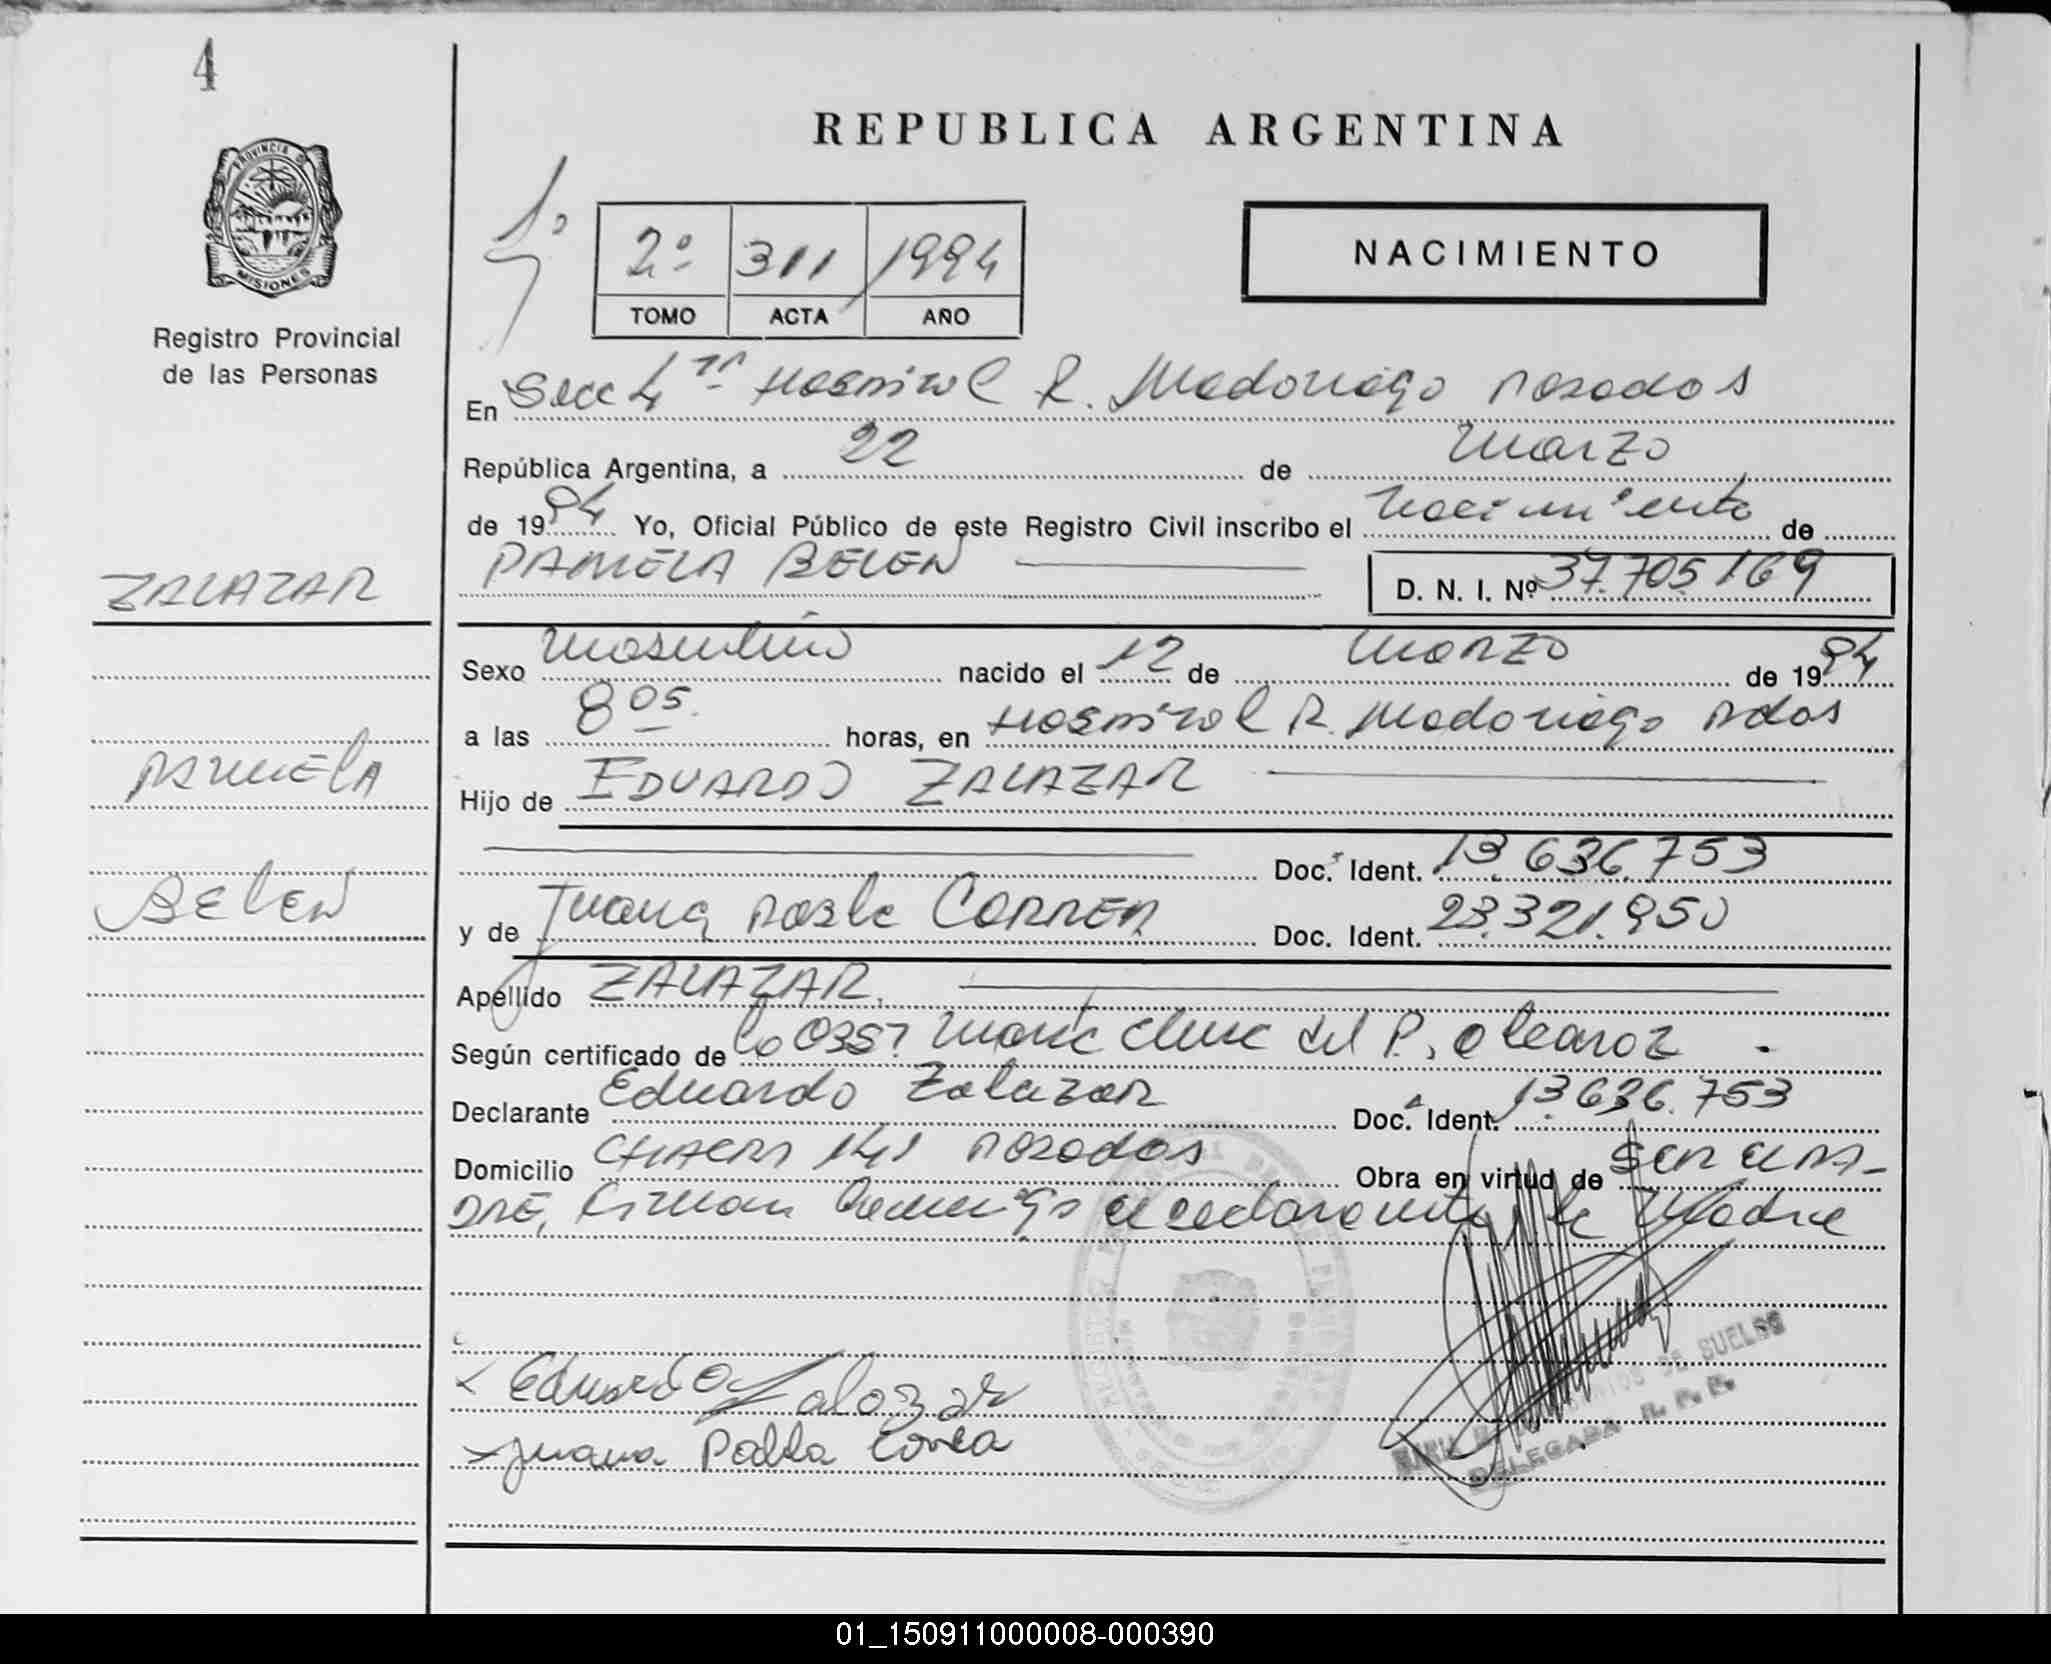 4
REPUBLICA ARGENTINA
PROVINCIA DE
MISIONES
1º
2º 311 1994
TOMO ACTA AÑO
NACIMIENTO
Registro Provincial
de las Personas
En Secc 4 Hospital R. Madariaga Posadas
República Argentina, a 22 de Marzo
de 1994 Yo, Oficial Público de este Registro Civil inscribo el Nacimiento de
PAMELA BELEN
D. N. I. Nº 37.705.169
ZALAZAR
PAMELA
BELEN
Sexo Masculino nacido el 12 de Marzo de 1994
a las 8 05 horas, en Hospital R. Madariaga Pdas
Hijo de EDUARDO ZALAZAR
Doc. Ident. 13.636.753
y de Juana Pabla CORREA Doc. Ident. 23.321.950
Apellido ZALAZAR
Según certificado de la Obst del P.
Declarante Eduardo Zalazar Doc. Ident. 13.636.753
Domicilio CHACRA 141 Posadas Obra en virtud de SER EL PA-
DRE, Firman Conmigo el declarante y la Madre
Eduardo Zalazar
Juana Pabla Correa
DE SUELOS
DELEGADA R. P. P.
01_150911000008-000390